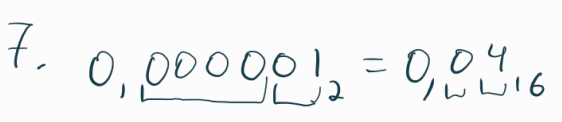 7. 0,000001₂ = 0,04₁₆